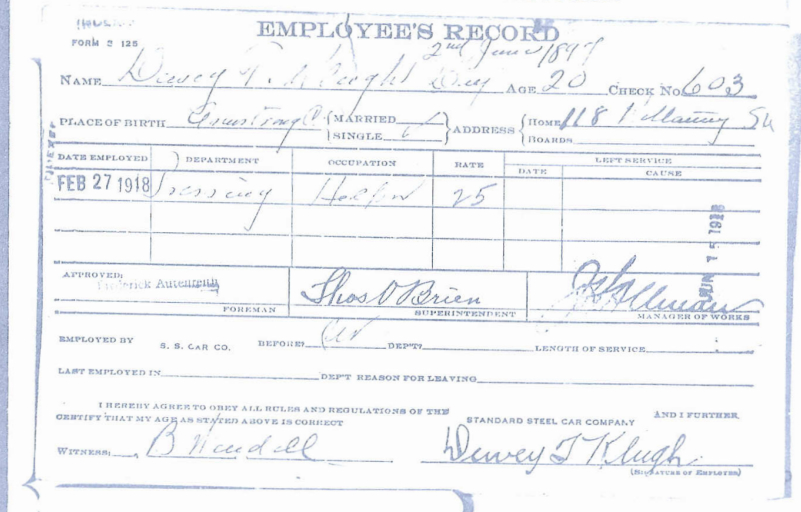 EMPLOYEE'S RECORD
FORM S 125
2nd June 1897
NAME Dewey T. Klugh Day AGE 20 CHECK No 603
PLACE OF BIRTH Armstrong C MARRIED ADDRESS HOME 118
SINGLE BOARDS
DATE EMPLOYED DEPARTMENT OCCUPATION RATE LEFT SERVICE
DATE CAUSE
FEB 27 1918 Pressing Helper 25
JUN 15 1918
APPROVED:
Frederick Autenreith Thos O Brien
FOREMAN SUPERINTENDENT MANAGER OF WORKS
EMPLOYED BY S. S. CAR CO. BEFORE? DEP'T? LENGTH OF SERVICE
LAST EMPLOYED IN DEP'T REASON FOR LEAVING
I HEREBY AGREE TO OBEY ALL RULES AND REGULATIONS OF THE STANDARD STEEL CAR COMPANY AND I FURTHER
CERTIFY THAT MY AGE AS STATED ABOVE IS CORRECT
WITNESS: B Wendell Dewey T Klugh
(SIGNATURE OF EMPLOYEE)